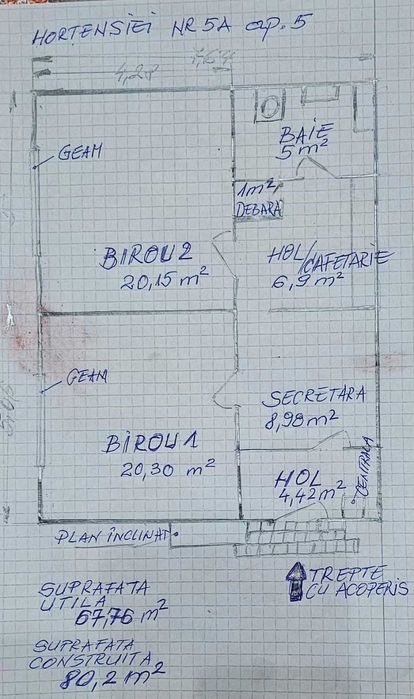 HORTENSIEI NR 5A ap. 5
4,28
7,64
GEAM
BAIE
5 m²
1m²
DEBARA
BIROU 2
20,15 m²
HOL/
CAFETARIE
6,9 m²
GEAM
SECRETARA
8,98 m²
BIROU 1
20,30 m²
HOL
4,42 m²
CENTRALA
PLAN ÎNCLINAT
TREPTE
CU ACOPERIS
SUPRAFATA
UTILA
67,76 m²
SUPRAFATA
CONSTRUITA
80,2 m²